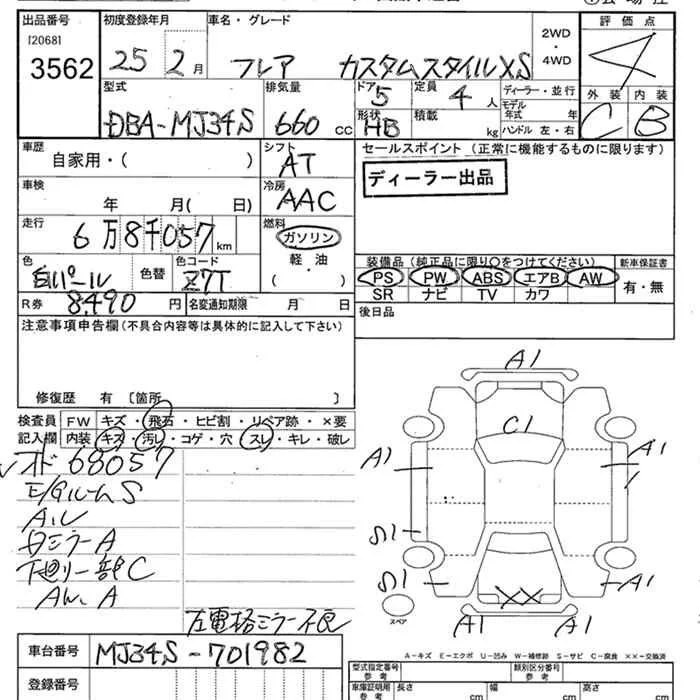 出品番号 初度登録年月 車名・グレード 2WD・4WD 評価点
[2068]
3562 25 2月 フレア カスタムスタイルXS 4
型式 排気量 ドア 5 定員 4人 ディーラー・並行 外装 内装
モデル年式 年
DBA-MJ34S 660cc 形状 HB 積載 kg ハンドル 左・右 C B
車歴 自家用・( ) シフト AT セールスポイント (正常に機能するものに限ります)
ディーラー出品
車検 年 月( 日) 冷房 AAC
走行 6万8千057km 燃料 ガソリン
軽・油
( )
色 白パール 色替 色コード Z7T
装備品(純正品に限り○をつけてください) 新車保証書
PS PW ABS エアB AW 有・無
SR ナビ TV カワ
R券 8,490円 名変通知期限 月 日
後日品
注意事項申告欄(不具合内容等は具体的に記入して下さい)
修復歴 有 [箇所 ]
検査員 FW キズ・飛石・ヒビ割・リペア跡・×要
記入欄 内装 キズ・汚レ・コゲ・穴・スレ・キレ・破レ
68057
E/Gルーム S
A.ル
下廻り一部C
AW. A
左電格ミラー不良
A1
C1
A1 A1
A1
XX
A1 A1
スペア
A-キズ E-エクボ U-凹み W-補修跡 S-サビ C-腐食 ××-交換済
車台番号 MJ34S-701982
登録番号
型式指定番号 参考 類別区分番号 参考
車庫証明用 参考 長さ cm 幅 cm 高さ cm